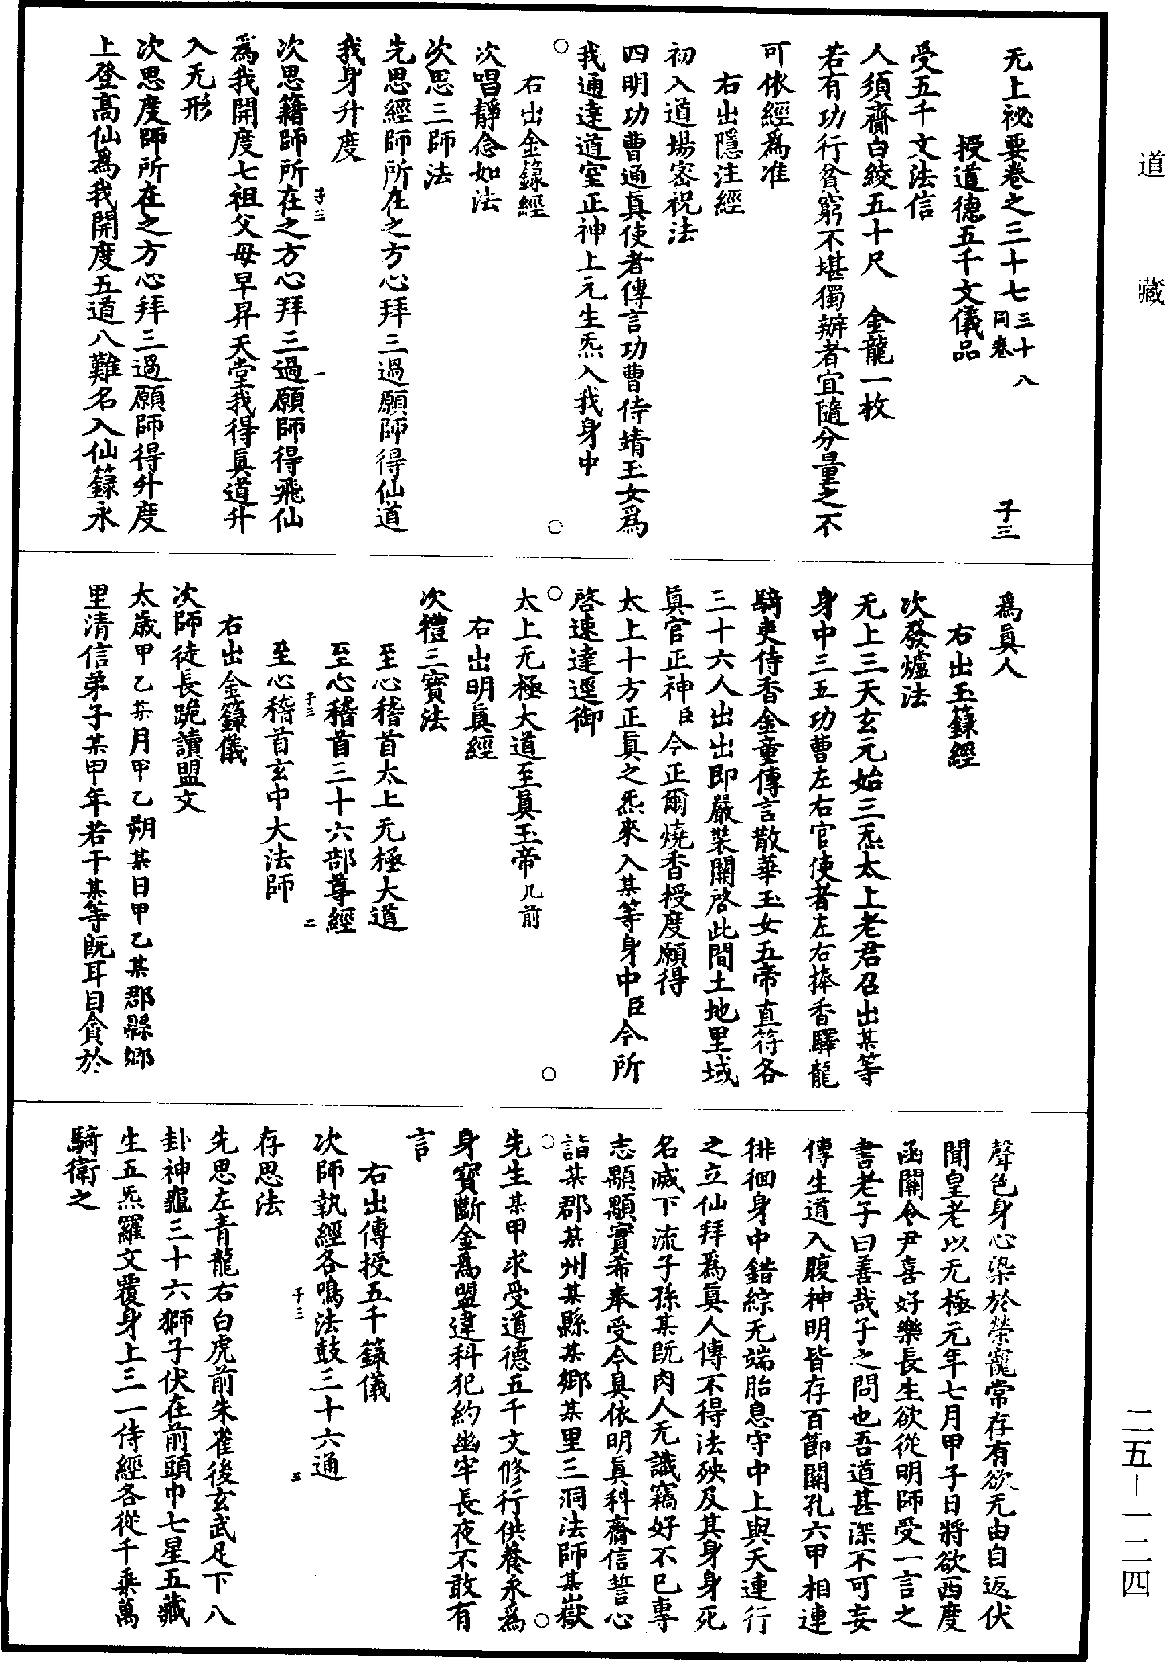 道藏
无上祕要卷之三十七 三十八同卷 子三
授道德五千文儀品
受五千文法信
人須齎白綾五十尺 金龍一枚
若有功行貧窮不堪獨辦者宜隨分量之不
可依經爲准
右出隱注經
初入道場密祝法
四明功曹通眞使者傳言功曹侍靖玉女爲
我通達道室正神上元生炁入我身中
右出金籙經
次唱靜念如法
次思三師法
先思經師所在之方心拜三過願師得仙道
我身升度
次思籍師所在之方心拜三過願師得飛仙
子三 一
爲我開度七祖父母早昇天堂我得眞道升
入无形
次思度師所在之方心拜三過願師得升度
上登高仙爲我開度五道八難名入仙籙永
爲眞人
右出玉籙經
次發爐法
无上三天玄元始三炁太上老君召出某等
身中三五功曹左右官使者左右捧香驛龍
騎吏侍香金童傳言散華玉女五帝直符各
三十六人出出即嚴裝關啓此間土地里域
眞官正神臣今正爾燒香授度願得
太上十方正眞之炁來入某等身中臣今所
啓速達逕御
太上无極大道至眞玉帝几前
右出明眞經
次禮三寶法
至心稽首太上无極大道
至心稽首三十六部尊經
子三 二
至心稽首玄中大法師
右出金籙儀
次師徒長跪讀盟文
太歲甲乙某月甲乙朔某日甲乙某郡縣鄉
里清信弟子某甲年若干某等既耳目貪於
聲色身心染於榮寵常存有欲无由自返伏
聞皇老以无極元年七月甲子日將欲西度
函關令尹喜好樂長生欲從明師受一言之
書老子曰善哉子之問也吾道甚深不可妄
傳生道入腹神明皆存百節關孔六甲相連
徘徊身中錯綜无端胎息守中上與天連行
之立仙拜爲眞人傳不得法殃及其身身死
名滅下流子孫某既肉人无識竊好不已專
志顒顒實希奉受今具依明眞科齎信誓心
詣某郡某州某縣某鄉某里三洞法師某嶽
先生某甲求受道德五千文修行供養永爲
身寶斷金爲盟違科犯約幽牢長夜不敢有
言
右出傳授五千籙儀
次師執經各鳴法鼓三十六通
子三 三
存思法
先思左青龍右白虎前朱雀後玄武足下八
卦神龜三十六獅子伏在前頭巾七星五藏
生五炁羅文覆身上三一侍經各從千乘萬
騎衛之
二五-一二四